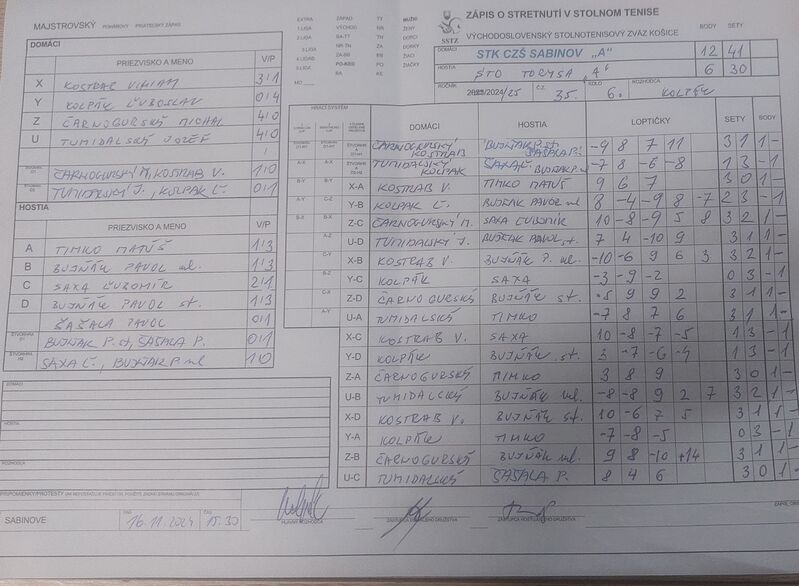 MAJSTROVSKÝ POHÁROVÝ PRIATEĽSKÝ ZÁPAS
DOMÁCI
PRIEZVISKO A MENO V/P
X KOSTRAB VIKIAM 3/1
Y KOLPÁK ĽUBOSLAV 0/4
Z ČARNOGURSKÝ MICHAL 4/0
U TUMIDALSKÝ JOZEF 4/0
ČARNOGURSKÝ M, KOSTRAB V. 1/0
TUMIDALSKÝ J., KOLPÁK Ľ. 0/1
HOSTIA
PRIEZVISKO A MENO V/P
A TIMKO MATÚŠ 1/3
B BUJŇÁK PAVOL ml. 1/3
C SAXA ĽUBOMÍR 2/1
D BUJŇÁK PAVOL st. 1/3
ŠAŠALA PAVOL 0/1
BUJŇAK P. st, ŠAŠALA P. 0/1
SAXA Ľ., BUJŇAK P. ml 1/0
DOMÁCI
HOSTIA
ROZHODCA
PRIPOMIENKY/PROTESTY
SABINOVE DŇA 16.11.2024 ČAS 15.30
HLAVNÝ ROZHODCA
EXTRA ZÁPAD TY MUŽI
1.LIGA VÝCHOD NR ŽENY
2.LIGA BA-TT TN DORCI
3.LIGA NR-TN ZA DORKY
4.LIGA ZA-BB BB ŽIACI
5.LIGA PO-KE PO ŽIAČKY
BA KE
MO
SSTZ
ZÁPIS O STRETNUTÍ V STOLNOM TENISE
VÝCHODOSLOVENSKÝ STOLNOTENISOVÝ ZVÄZ KOŠICE BODY SETY
DOMÁCI STK CZŠ SABINOV „A" 12 41
HOSTIA STO TORYSA "A" 6 30
ROČNÍK 2024/25 Č.Z. 35. KOLO 6. ROZHODCA KOLPÁK
HRACÍ SYSTÉM DOMÁCI HOSTIA LOPTIČKY SETY BODY
ČARNOGURSKÝ KOSTRAB BUJŇAK P. st. ŠAŠALA P. -9 8 7 11 3 1 1 -
TUMIDALSKÝ KOLPAK SAXA Ľ. BUJŇAK P. ml -7 8 -6 -8 1 3 - 1
X-A KOSTRAB V. TIMKO MATÚŠ 9 6 7 3 0 1 -
Y-B KOLPAK Ľ. BUJŇAK PAVOL ml 8 -4 -9 8 -7 2 3 - 1
Z-C ČARNOGURSKÝ M. SAXA ĽUBOMÍR 10 -8 -9 5 8 3 2 1 -
U-D TUMIDALSKÝ J. BUJŇAK PAVOL st. 7 4 -10 9 3 1 1 -
X-B KOSTRAB V. BUJŇÁK P. ml. -10 -6 9 6 3 3 2 1 -
Y-C KOLPÁK SAXA -3 -9 -2 0 3 - 1
Z-D ČARNOGURSKÝ BUJŇÁK st. -5 9 9 2 3 1 1 -
U-A TUMIDALSKÝ TIMKO -1 8 7 6 3 1 1 -
X-C KOSTRAB V. SAXA 10 -8 -7 -5 1 3 - 1
Y-D KOLPÁK BUJŇÁK st. 3 -7 -6 -4 1 3 - 1
Z-A ČARNOGURSKÝ TIMKO 3 8 9 3 0 1 -
U-B TUMIDALSKÝ BUJŇÁK ml. -8 -8 9 2 7 3 2 1 -
X-D KOSTRAB V. BUJŇÁK st. 10 -6 7 5 3 1 1 -
Y-A KOLPÁK TIMKO -7 -8 -5 0 3 - 1
Z-B ČARNOGURSKÝ BUJŇÁK ml. 9 8 -10 +14 3 1 1 -
U-C TUMIDALSKÝ ŠAŠALA P. 8 4 6 3 0 1 -